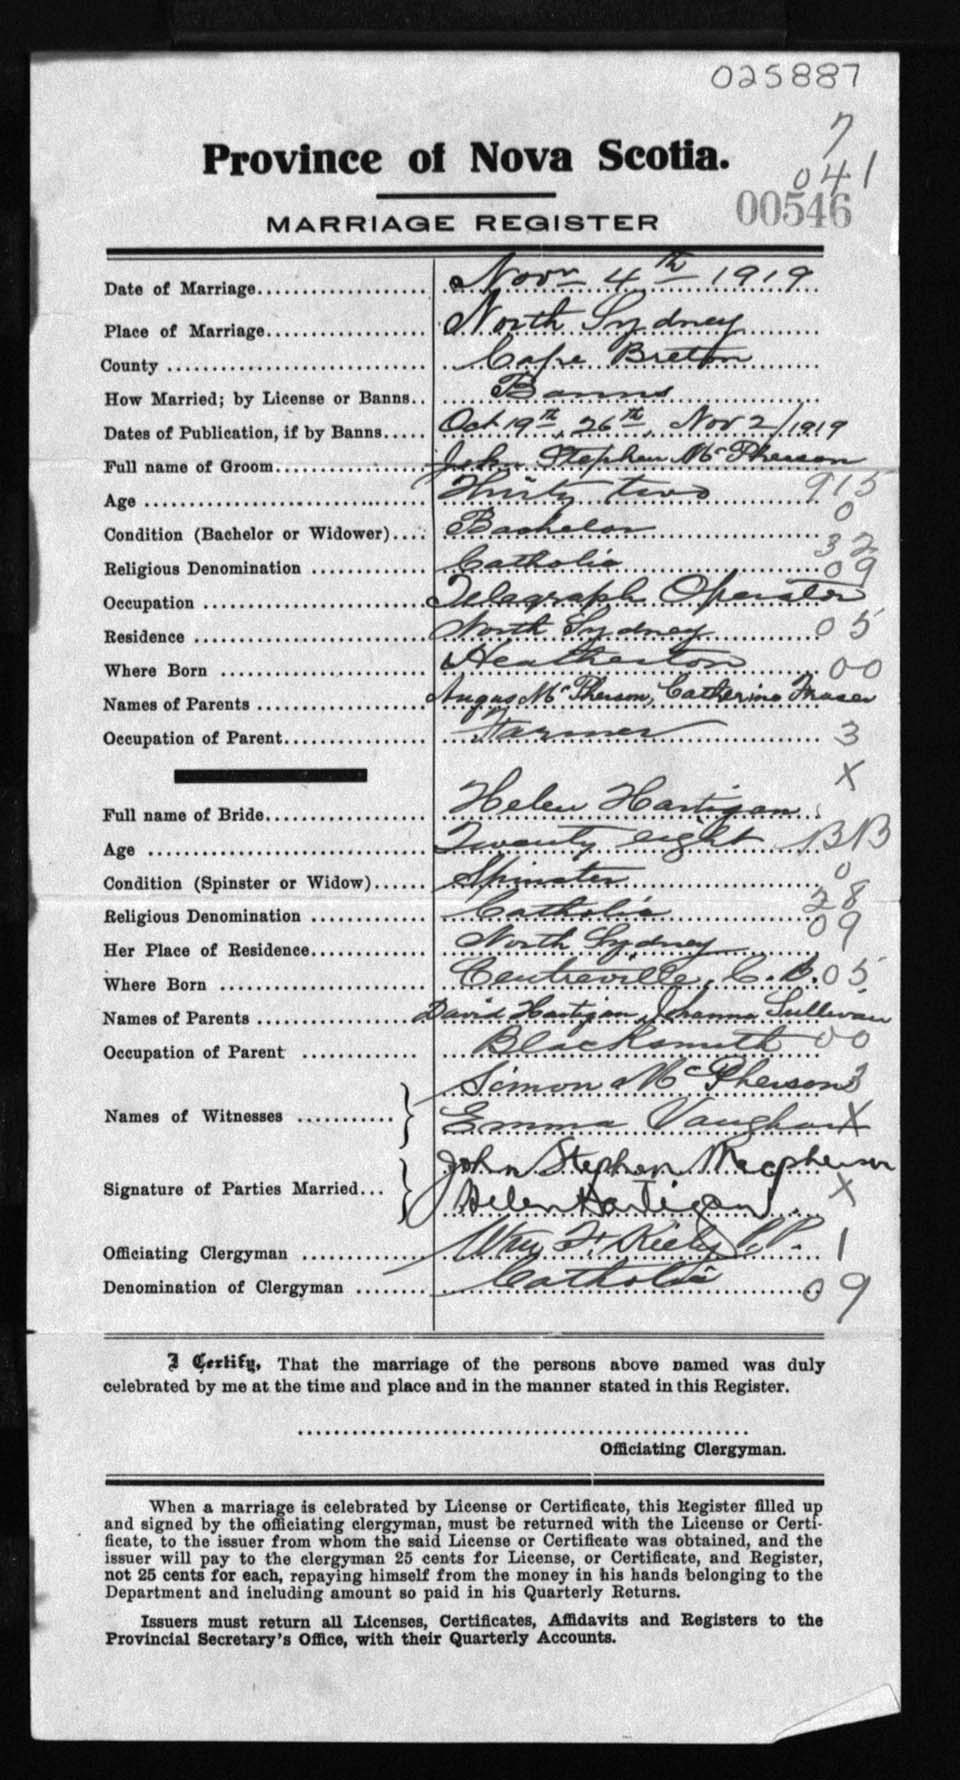 025887
7
041
Province of Nova Scotia.
00546
MARRIAGE REGISTER
Date of Marriage.................... Novr 4th 1919
Place of Marriage.................. North Sydney
County ............................. Cape Breton
How Married; by License or Banns.. Banns
Dates of Publication, if by Banns..... Oct 19th, 26th, Nov 2/1919
Full name of Groom................. John Stephen McPherson
Age ............................... Thirty two 915
Condition (Bachelor or Widower).... Bachelor 0
Religious Denomination ............. Catholic 32
Occupation ......................... Telegraph Operator 09
Residence .......................... North Sydney 05
Where Born ........................ Heatherton 00
Names of Parents ................... Angus McPherson, Catherine Fraser
Occupation of Parent................ Farmer 3
X
Full name of Bride.................. Helen Hartigan
Age ............................... Twenty eight BB
Condition (Spinster or Widow)...... Spinster 0
Religious Denomination ............. Catholic 28
Her Place of Residence............. North Sydney 09
Where Born ........................ Centreville, C. B. 05
Names of Parents ................... David Hartigan, Johanna Sullivan
Occupation of Parent ............. Blacksmith 00
Simon McPherson 3
Names of Witnesses ........... } Emma Vaughan X
John Stephen Macpherson
Signature of Parties Married... } Helen Hartigan X
Officiating Clergyman .............. Wm F. Kiely P.P. 1
Denomination of Clergyman ........ Catholic 09
I Certify, That the marriage of the persons above named was duly
celebrated by me at the time and place and in the manner stated in this Register.
..................................................
Officiating Clergyman.
When a marriage is celebrated by License or Certificate, this Register filled up
and signed by the officiating clergyman, must be returned with the License or Certi-
ficate, to the issuer from whom the said License or Certificate was obtained, and the
issuer will pay to the clergyman 25 cents for License, or Certificate, and Register,
not 25 cents for each, repaying himself from the money in his hands belonging to the
Department and including amount so paid in his Quarterly Returns.
Issuers must return all Licenses, Certificates, Affidavits and Registers to the
Provincial Secretary's Office, with their Quarterly Accounts.